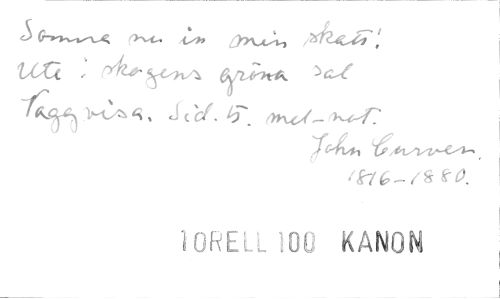 Somna nu in min skatt!
Ute i skogens gröna sal
Vaggvisa. Sid. 15. mel-not.
John Curwen.
1816-1880.
TORELL 100 KANON